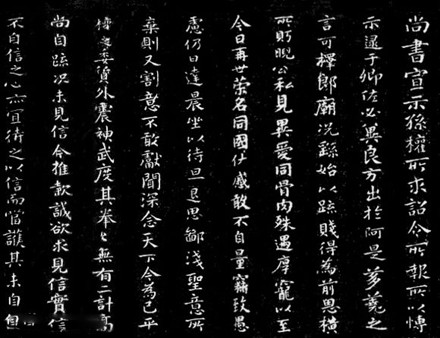 尚書宣示孫權所求詔令所報所以博
示逮于卿佐必冀良方出於阿是芻蕘之
言可擇郎廟況繇始以疏賤得為前恩橫
所盱睨公私見異愛同骨肉殊遇厚寵以至
今日再世榮名同國休慼敢不自量竊致愚
慮仍日達晨坐以待旦退思鄙淺聖意所
棄則又割意不敢獻聞深念天下今為已平
權之委質外震神武度其拳拳無有二計高
尚自疏況未見信今推款誠欲求見信實懷
不自信之心亦宜待之以信而當護其未自信